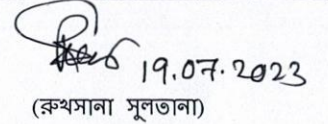 19.07.2023
(রুখসানা সুলতানা)